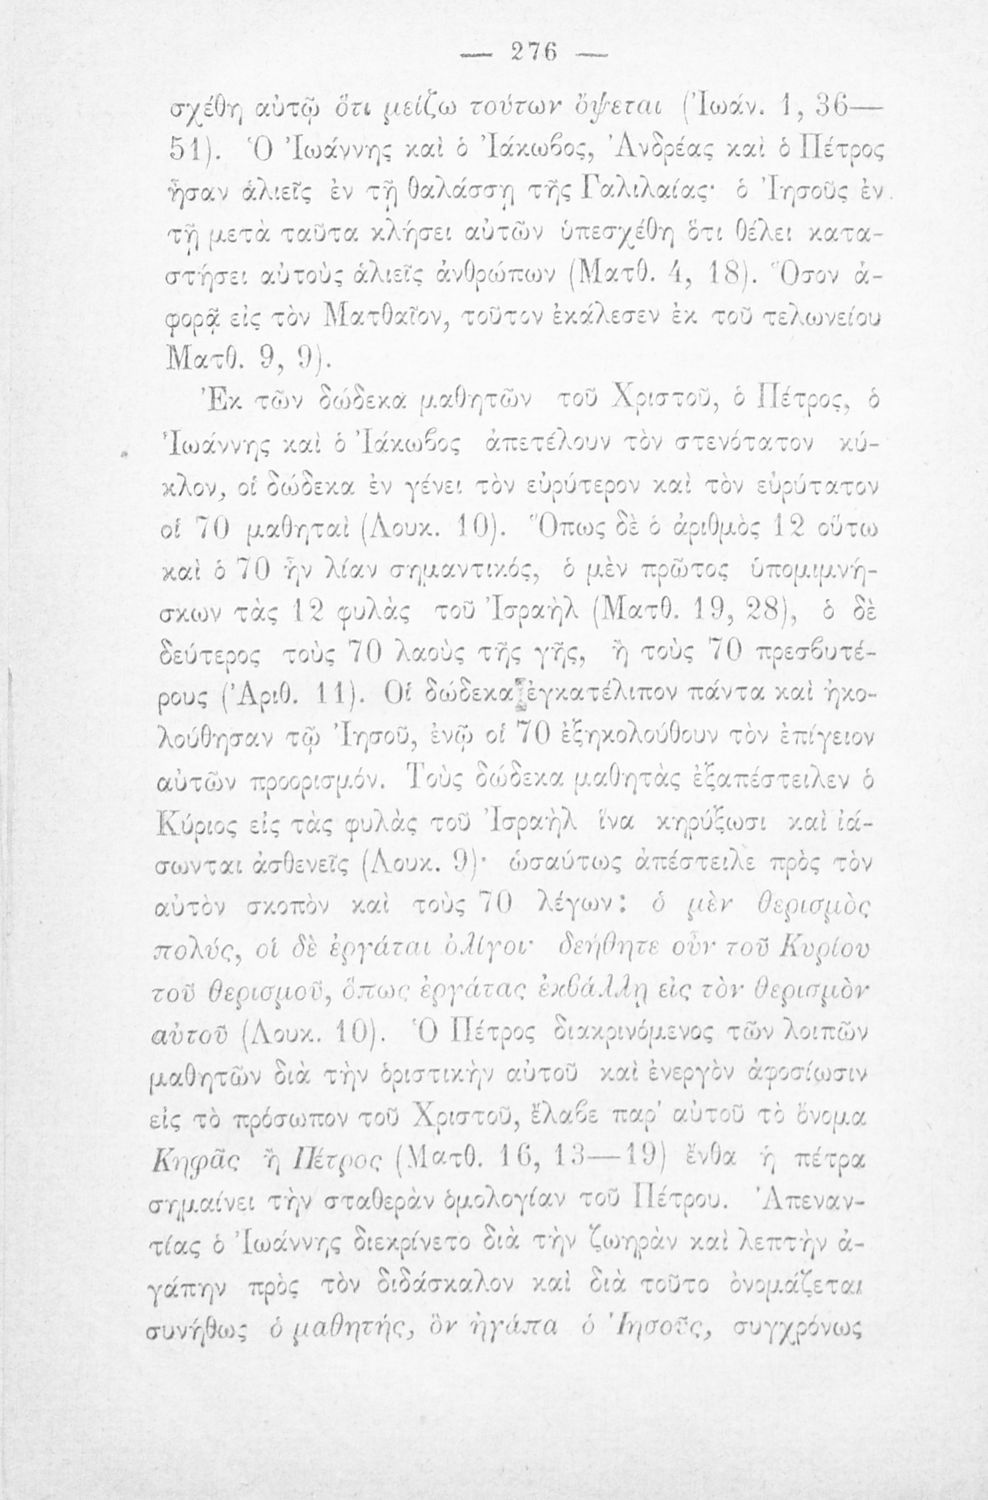 — 276 —
σχέθη αὐτῷ ὅτι μείζω τούτων ὄψεται (Ἰωάν. 1, 36—
51). Ὁ Ἰωάννης καὶ ὁ Ἰάκωβος, Ἀνδρέας καὶ ὁ Πέτρος
ἦσαν ἁλιεῖς ἐν τῇ θαλάσσῃ τῆς Γαλιλαίας· ὁ Ἰησοῦς ἐν
τῇ μετὰ ταῦτα κλήσει αὐτῶν ὑπεσχέθη ὅτι θέλει κατα-
στήσει αὐτοὺς ἁλιεῖς ἀνθρώπων (Ματθ. 4, 18). Ὅσον ἀ-
φορᾷ εἰς τὸν Ματθαῖον, τοῦτον ἐκάλεσεν ἐκ τοῦ τελωνείου
Ματθ. 9, 9).
Ἐκ τῶν δώδεκα μαθητῶν τοῦ Χριστοῦ, ὁ Πέτρος, ὁ
Ἰωάννης καὶ ὁ Ἰάκωβος ἀπετέλουν τὸν στενότατον κύ-
κλον, οἱ δώδεκα ἐν γένει τὸν εὐρύτερον καὶ τὸν εὐρύτατον
οἱ 70 μαθηταὶ (Λουκ. 10). Ὅπως δὲ ὁ ἀριθμὸς 12 οὕτω
καὶ ὁ 70 ἦν λίαν σημαντικός, ὁ μὲν πρῶτος ὑπομιμνή-
σκων τὰς 12 φυλὰς τοῦ Ἰσραὴλ (Ματθ. 19, 28), ὁ δὲ
δεύτερος τοὺς 70 λαοὺς τῆς γῆς, ἢ τοὺς 70 πρεσβυτέ-
ρους (Ἀριθ. 11). Οἱ δώδεκα ἐγκατέλιπον πάντα καὶ ἠκο-
λούθησαν τῷ Ἰησοῦ, ἐνῷ οἱ 70 ἐξηκολούθουν τὸν ἐπίγειον
αὐτῶν προορισμόν. Τοὺς δώδεκα μαθητὰς ἐξαπέστειλεν ὁ
Κύριος εἰς τὰς φυλὰς τοῦ Ἰσραὴλ ἵνα κηρύξωσι καὶ ἰά-
σωνται ἀσθενεῖς (Λουκ. 9)· ὡσαύτως ἀπέστειλε πρὸς τὸν
αὐτὸν σκοπὸν καὶ τοὺς 70 λέγων: ὁ μὲν θερισμὸς
πολύς, οἱ δὲ ἐργάται ὀλίγοι· δεήθητε οὖν τοῦ Κυρίου
τοῦ θερισμοῦ, ὅπως ἐργάτας ἐκβάλλῃ εἰς τὸν θερισμὸν
αὐτοῦ (Λουκ. 10). Ὁ Πέτρος διακρινόμενος τῶν λοιπῶν
μαθητῶν διὰ τὴν ὁριστικὴν αὐτοῦ καὶ ἐνεργὸν ἀφοσίωσιν
εἰς τὸ πρόσωπον τοῦ Χριστοῦ, ἔλαβε παρ' αὐτοῦ τὸ ὄνομα
Κηφᾶς ἢ Πέτρος (Ματθ. 16, 13—19) ἔνθα ἡ πέτρα
σημαίνει τὴν σταθερὰν ὁμολογίαν τοῦ Πέτρου. Ἀπεναν-
τίας ὁ Ἰωάννης διεκρίνετο διὰ τὴν ζωηρὰν καὶ λεπτὴν ἀ-
γάπην πρὸς τὸν διδάσκαλον καὶ διὰ τοῦτο ὀνομάζεται
συνήθως ὁ μαθητής, ὃν ἠγάπα ὁ Ἰησοῦς, συγχρόνως